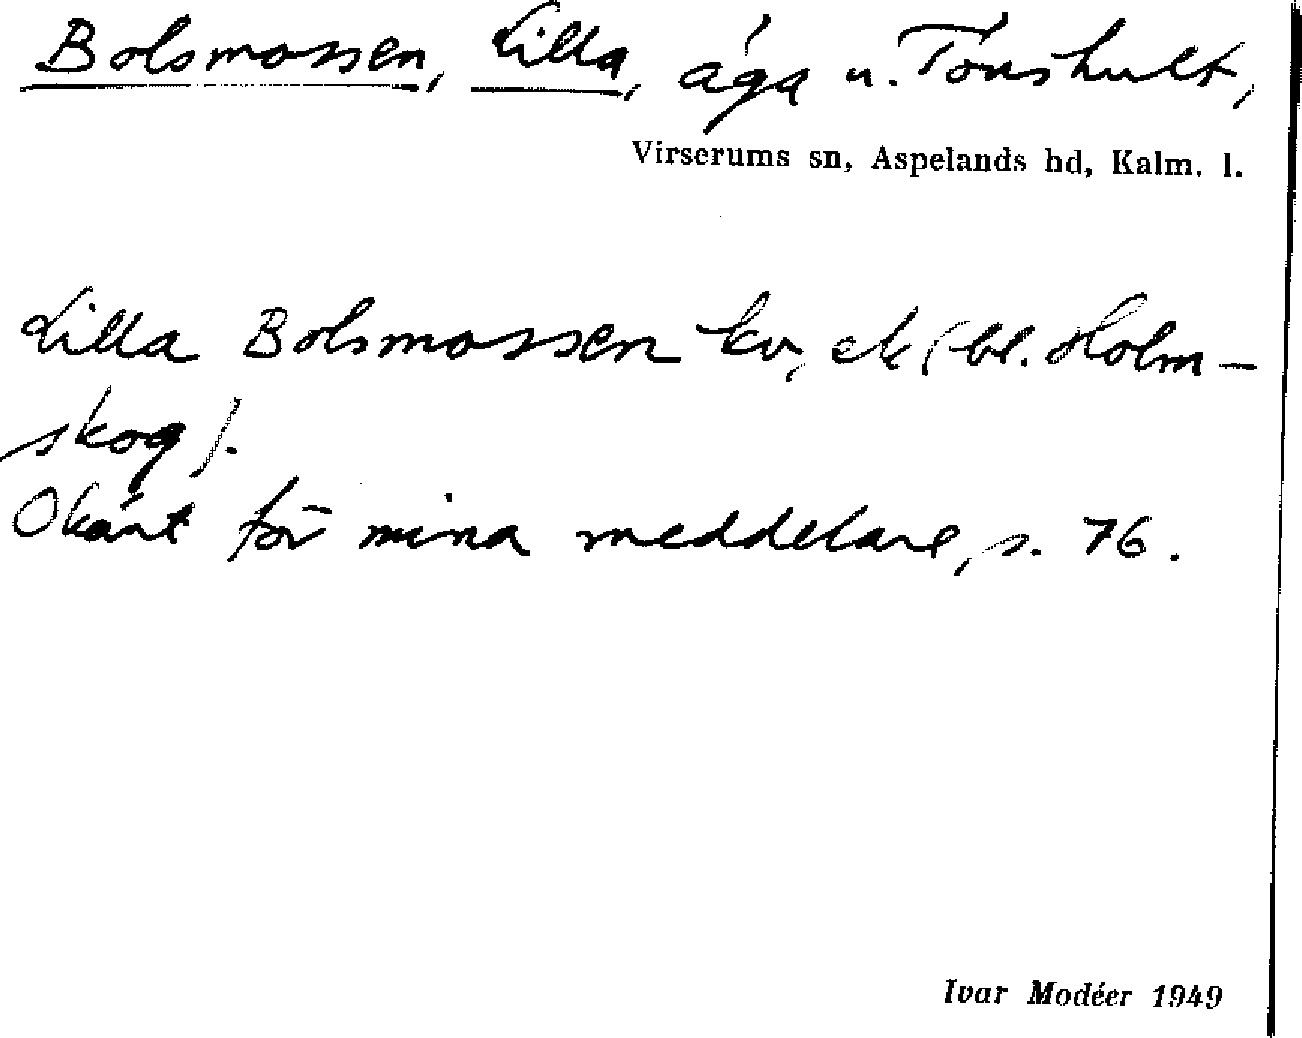 Bolsmossen, Lilla, äga u. Tönshult,
Virserums sn, Aspelands hd, Kalm. l.
Lilla Bolsmossen kv, ek (bl. Holm-
skog).
Okänt för mina meddelare, s. 76.
Ivar Modéer 1949